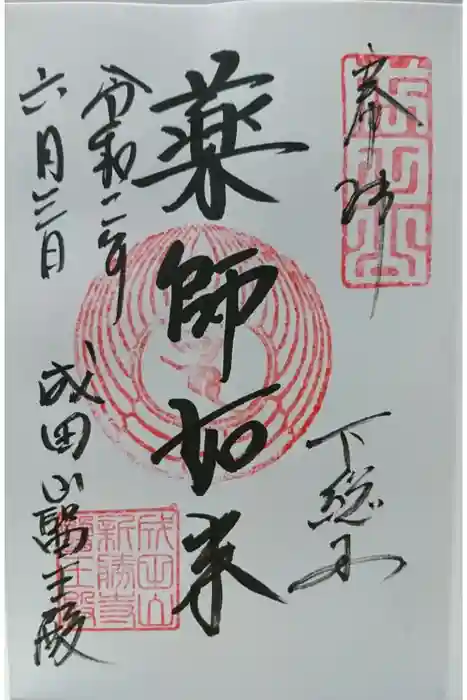 奉拝
下総国
薬師如来
令和二年
六月三日
成田山医王殿
新勝寺
成田山
新勝寺
医王殿